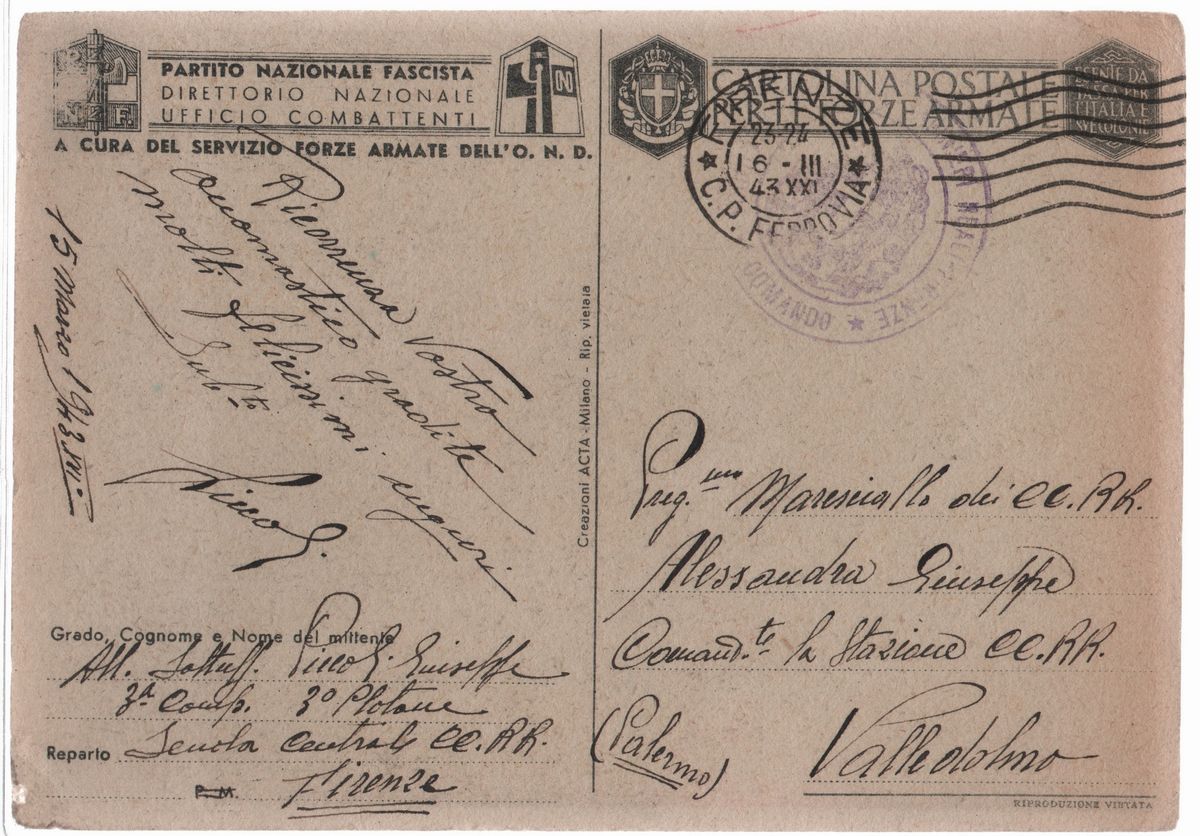 PARTITO NAZIONALE FASCISTA
DIRETTORIO NAZIONALE
UFFICIO COMBATTENTI
A CURA DEL SERVIZIO FORZE ARMATE DELL'O. N. D.
15 Marzo 1943
Ricorrenza Vostro
onomastico gradite
molti felicissimi auguri
Grado, Cognome e Nome del mittente
All. Sottuff. Giuseppe
3ª Comp. 3º Plotone
Reparto Scuola Centrale CC.RR.
P. M. Firenze
Creazioni ACTA - Milano - Rip. vietata
CARTOLINA POSTALE
PER LE FORZE ARMATE
FIRENZE
23-24
16 - III
43 XXI
C.P. FERROVIA
COMANDO
Preg.mo Maresciallo dei CC.RR.
Alessandra Giuseppe
Comand.te la Stazione CC.RR.
(Palermo) Valledolmo
RIPRODUZIONE VIETATA